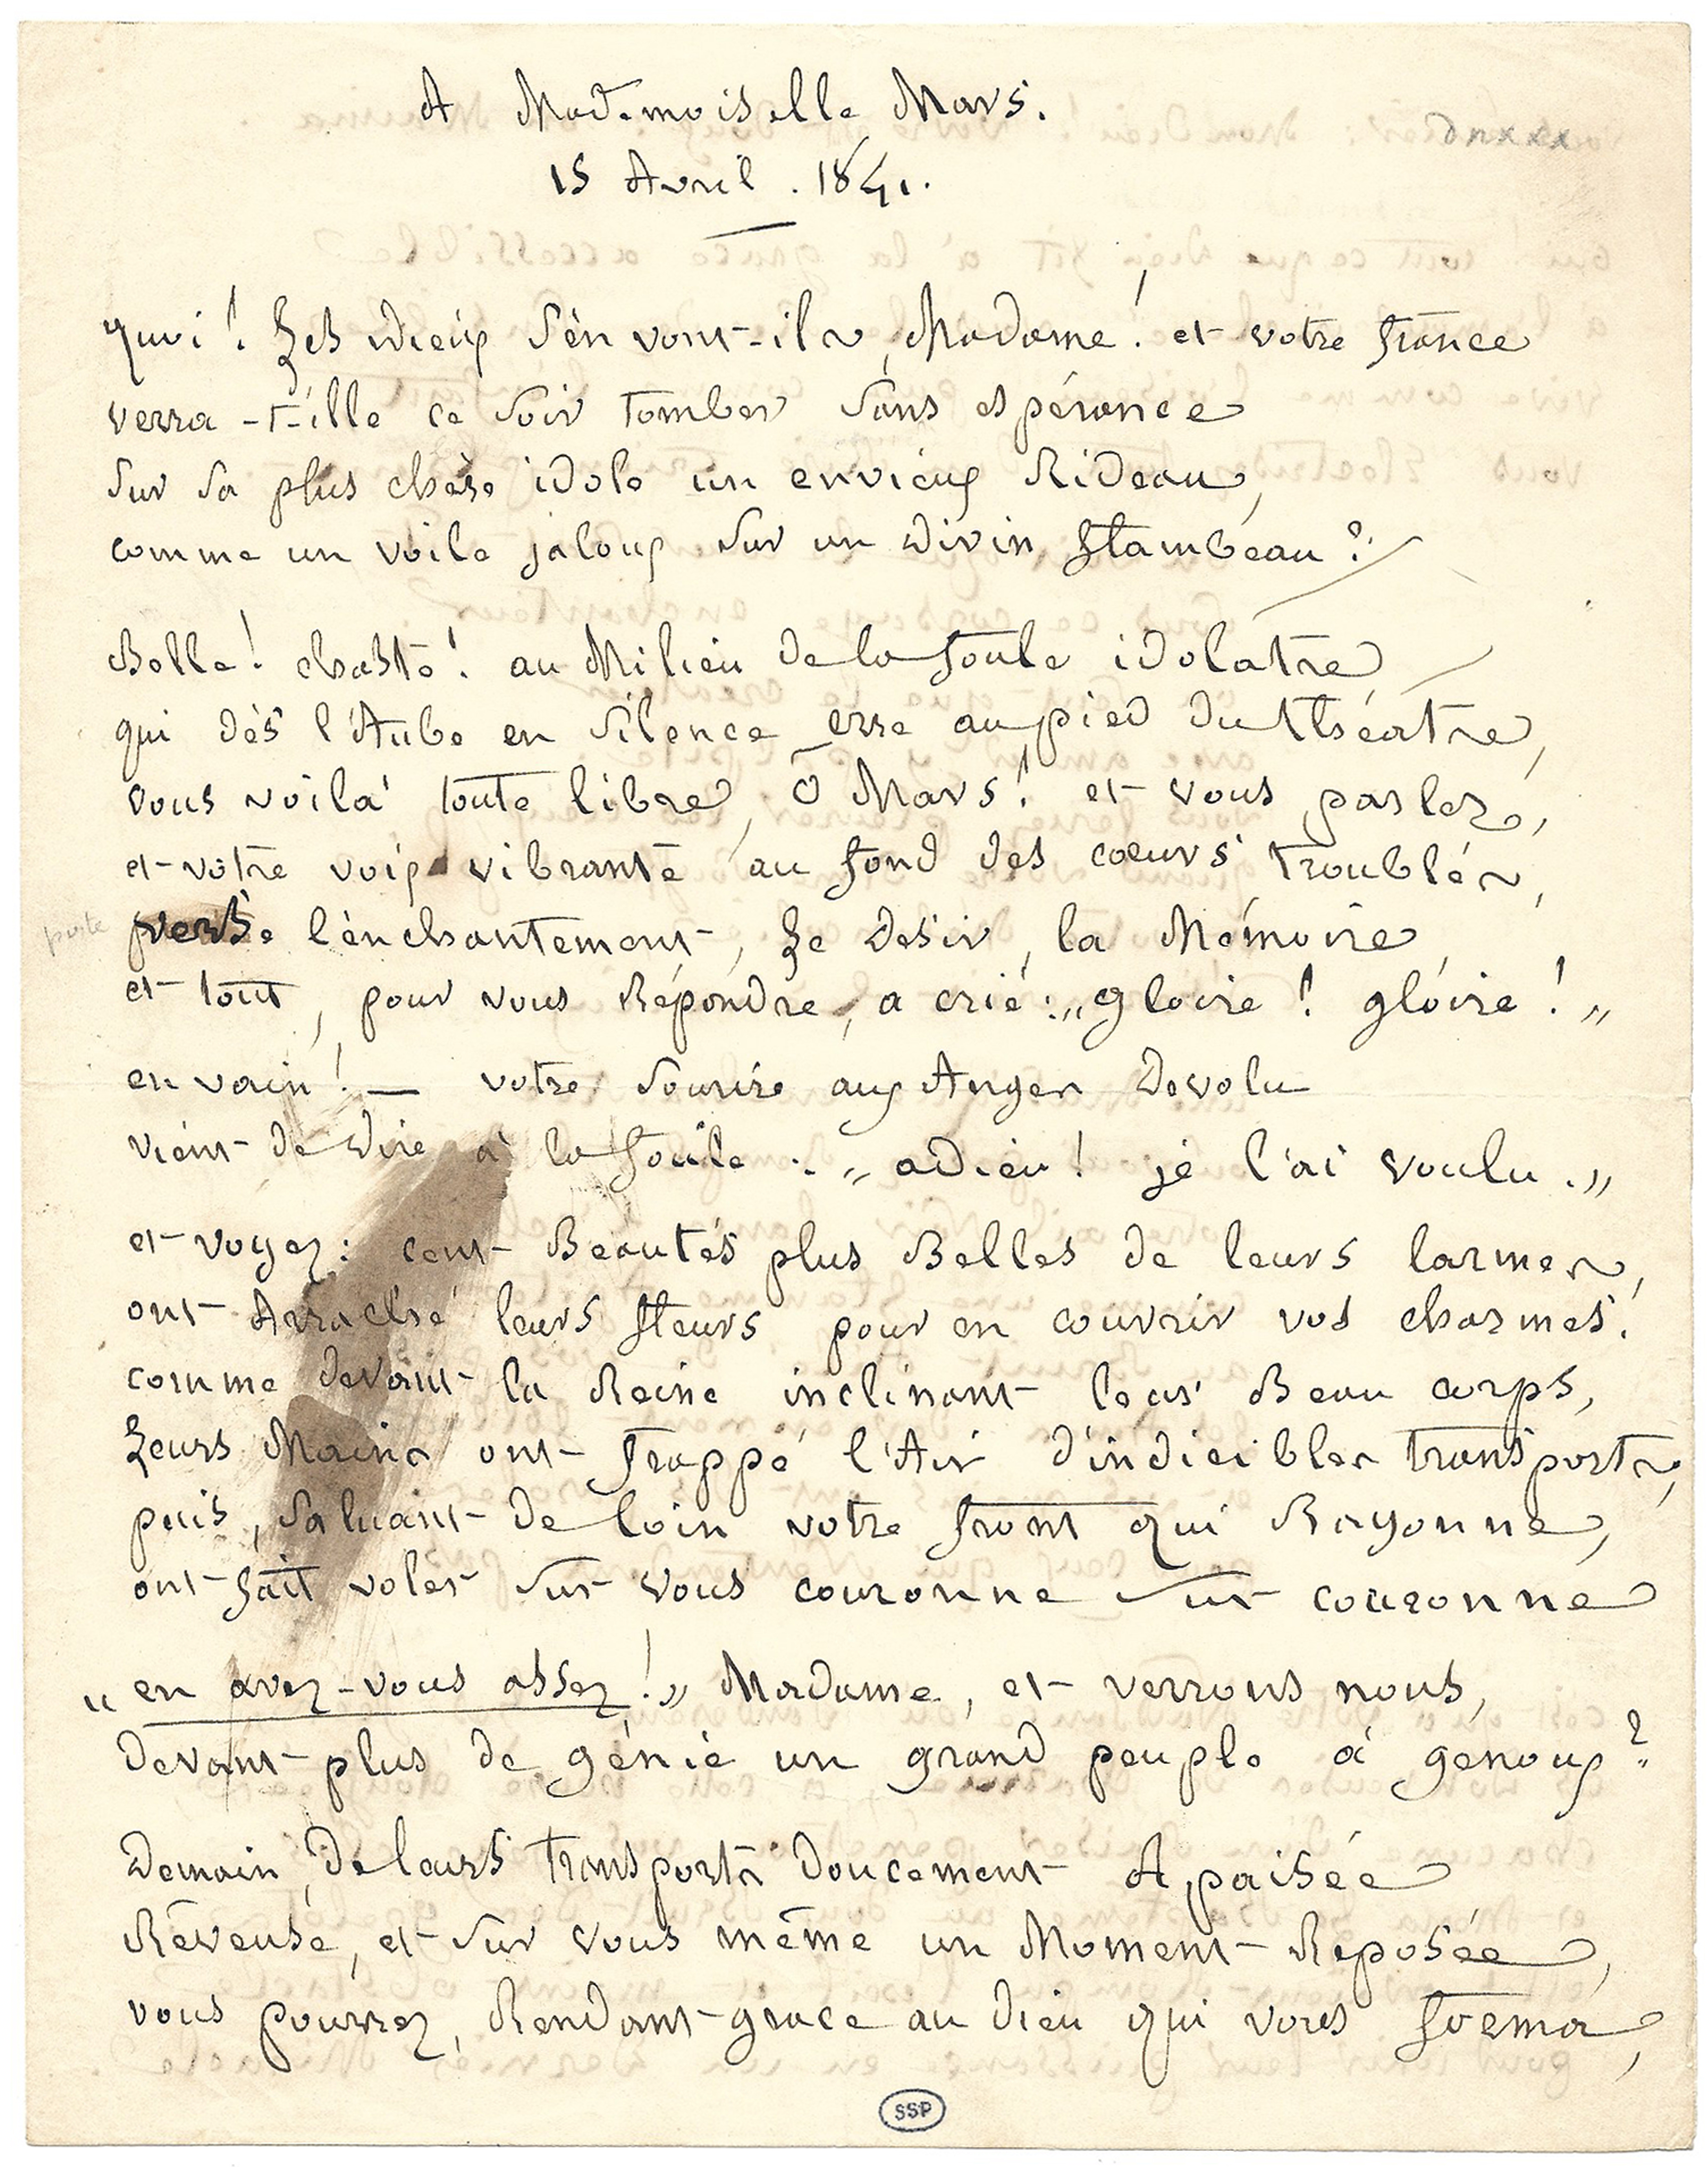 A Mademoiselle Mars.
15 Avril . 1841.
quoi ! Les Dieux s'en vont-ils, Madame ! et votre france
verra-t-ille ce soir tomber sans espérance
sur sa plus chère idole un envieux Rideau,
comme un voile jaloux sur un divin flambeau ?
Belle ! chaste ! au Milieu de la foule idolatre
qui dès l'Aube en silence erre au pied du théatre,
vous voilà toute libre, ô Mars ! et vous parlez,
et votre voix vibrante au fond des coeurs troublés,
porte verse l'enchantement, Le Désir, la Mémoire
et tout, pour vous Répondre, a crié : „gloire ! gloire ! „
en vain ! — votre sourire aux Anges Dévolu
vient de dire à la foule : „ adieu ! je l'ai voulu . „
et voyez : cent Beautés plus Belles de leurs larmes,
ont Arraché leurs fleurs pour en couvrir vos charmes !
comme devant la Reine inclinant leur Beau corps,
Leurs Mains ont frappé l'Air d'indicibles transports,
puis, saluant de loin votre front qui Rayonne,
ont fait voler sur vous couronne sur couronne
„ en avez-vous assez ! „ Madame, et verrons nous,
devant plus de génie un grand peuple à genoux ?
Demain, de leurs transports doucement Apaisée
Rêveuse, et sur vous même un Moment Reposée,
vous pourrez, Rendant grace au Dieu qui vous forma,
SSP